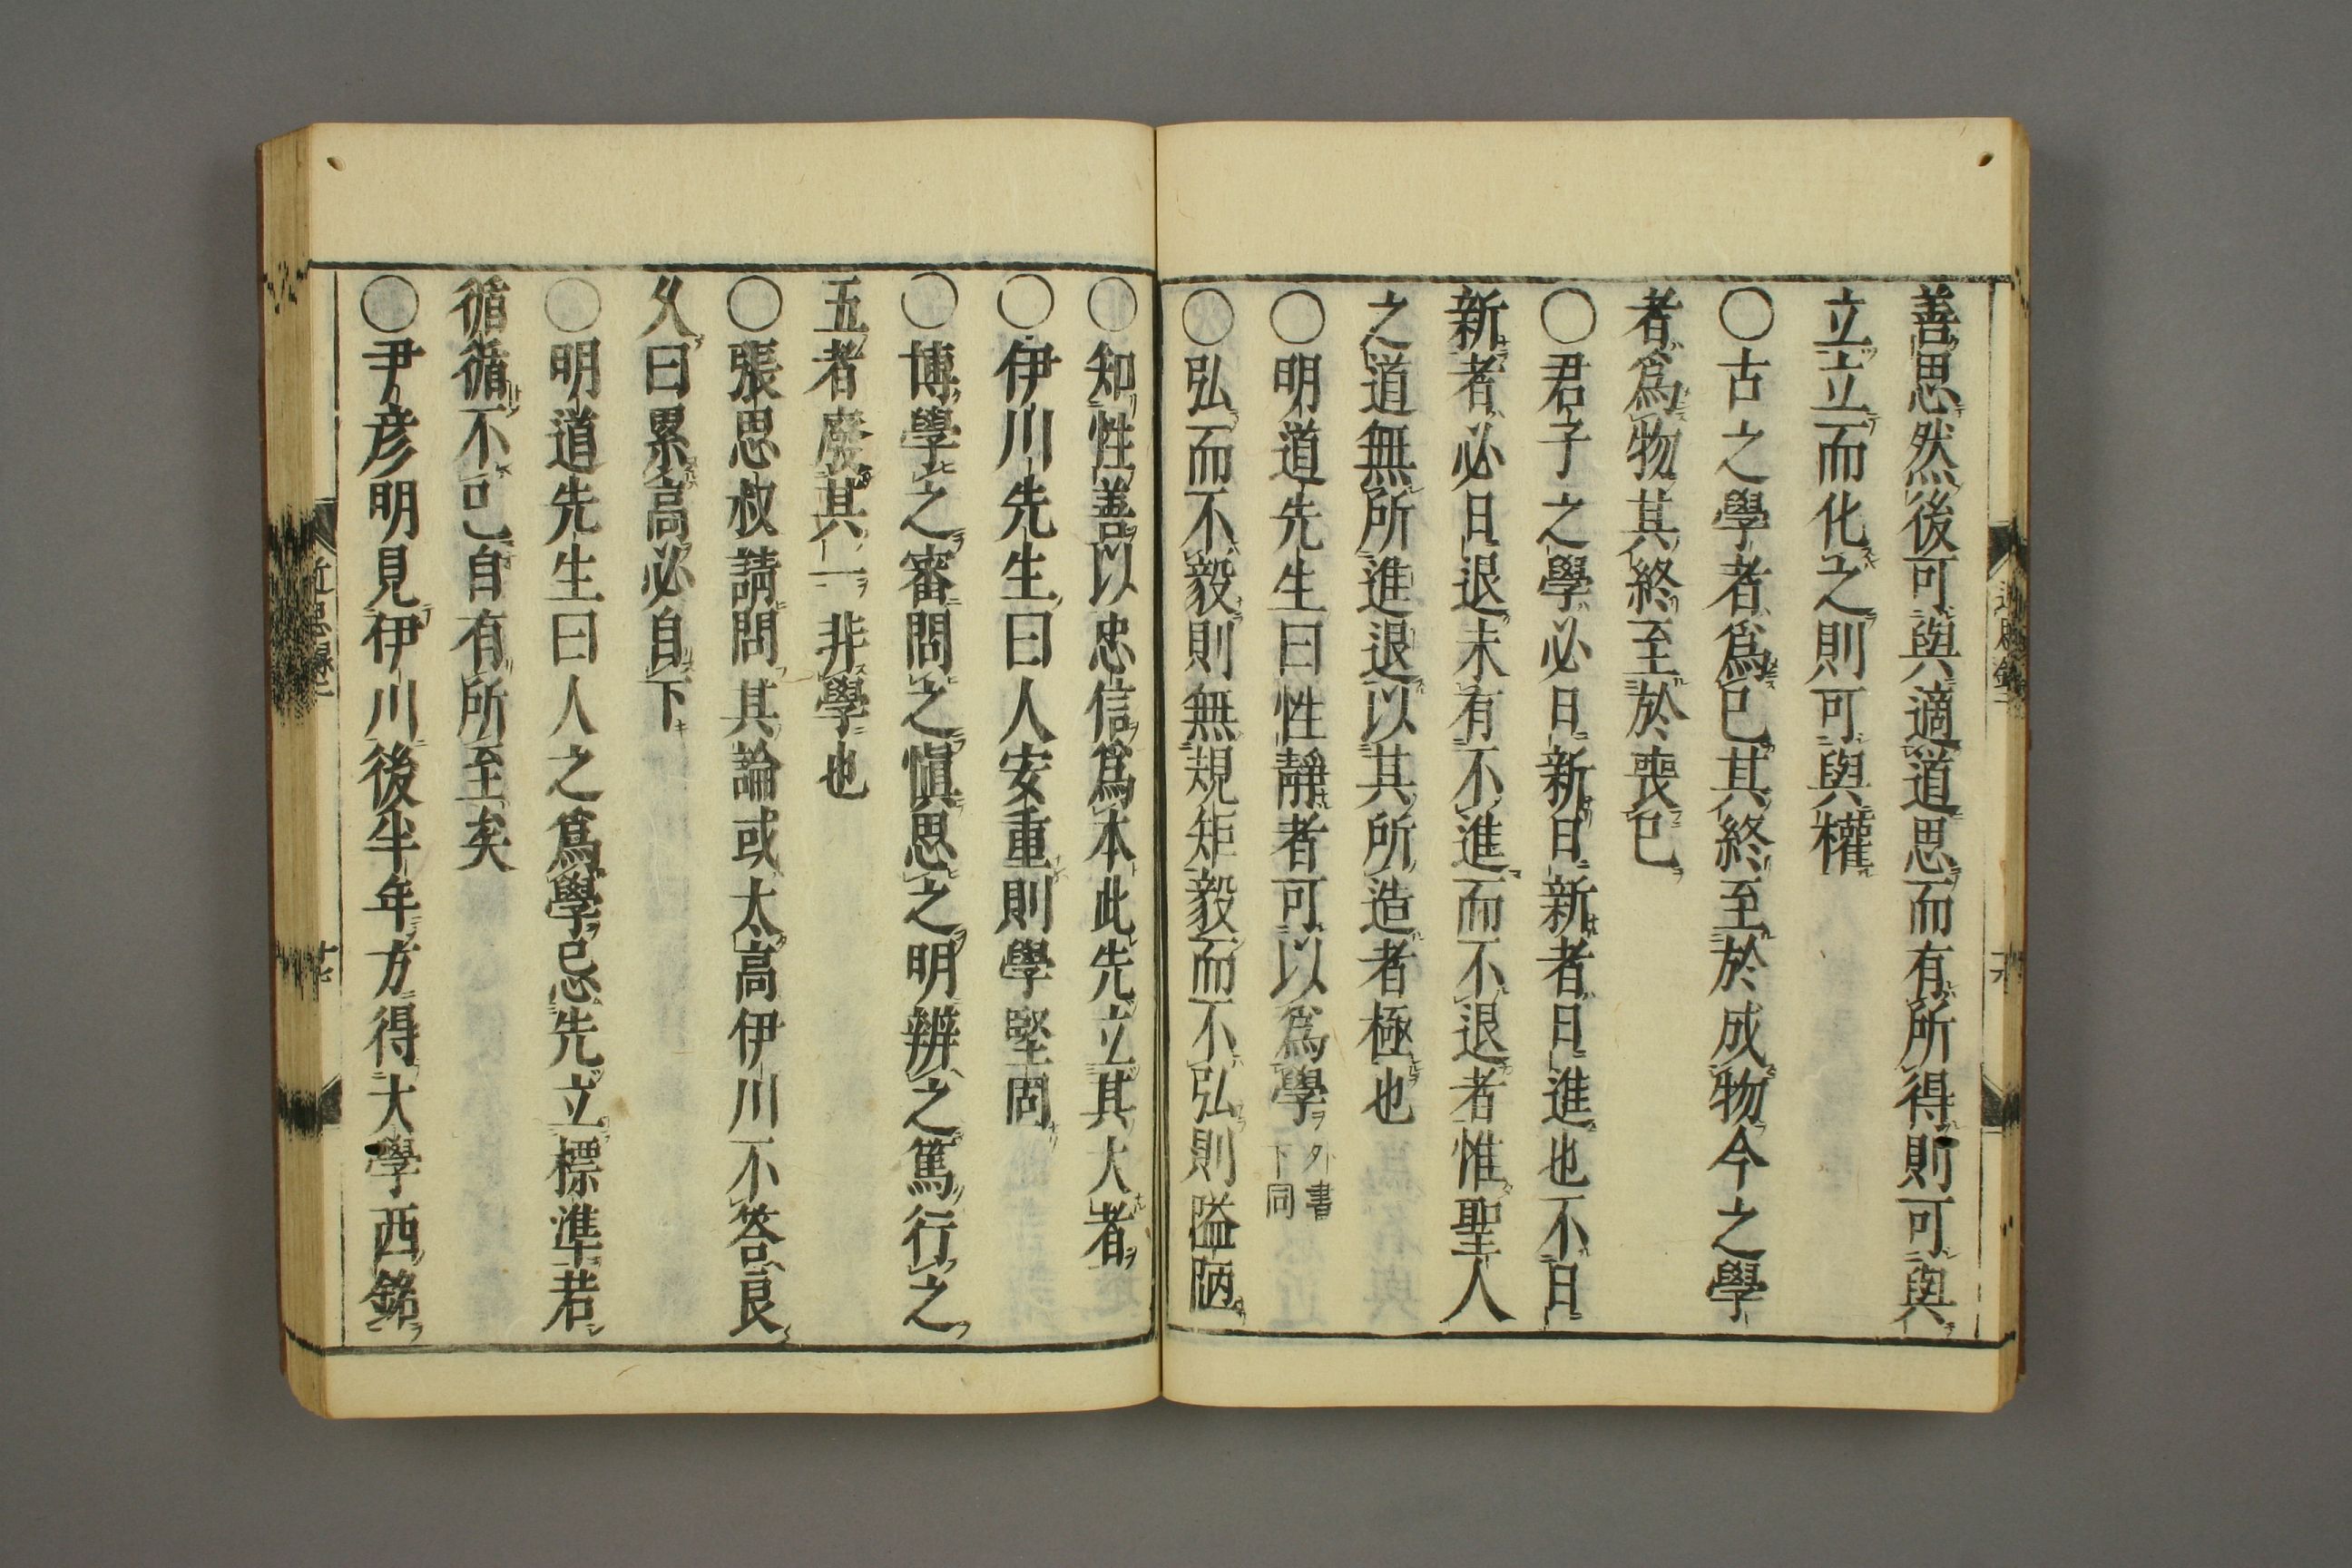 善思然後可與適道思而有所得則可與
立立而化之則可與權
○古之學者爲己其終至於成物今之學
者爲物其終至於喪己
○君子之學必日新日新者日進也不日
新者必日退未有不進而不退者惟聖人
之道無所進退以其所造者極也
○明道先生曰性靜者可以爲學外書下同
○弘而不毅則無規矩毅而不弘則隘陋
○知性善以忠信爲本此先立其大者
○伊川先生曰人安重則學堅固
○博學之審問之愼思之明辨之篤行之
五者廢其一非學也
○張思叔請問其論或太高伊川不答良
久曰累高必自下
○明道先生曰人之爲學忌先立標準若
循循不已自有所至矣
○尹彥明見伊川後半年方得大學西銘
近思錄二